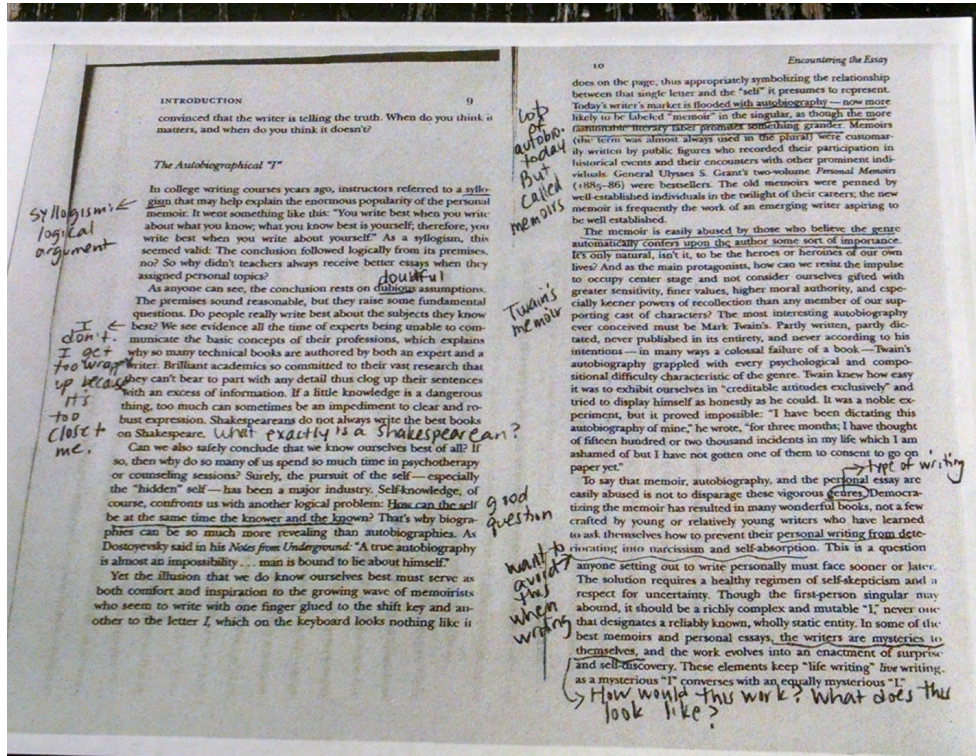 INTRODUCTION 9
convinced that the writer is telling the truth. When do you think it
matters, and when do you think it doesn't?
The Autobiographical "I"
In college writing courses years ago, instructors referred to a syllo-
gism that may help explain the enormous popularity of the personal
memoir. It went something like this: "You write best when you write
about what you know; what you know best is yourself; therefore, you
write best when you write about yourself." As a syllogism, this
seemed valid: The conclusion followed logically from its premises,
no? So why didn't teachers always receive better essays when they
assigned personal topics?
syllogism:
logical
argument
doubtful
As anyone can see, the conclusion rests on dubious assumptions.
The premises sound reasonable, but they raise some fundamental
questions. Do people really write best about the subjects they know
best? We see evidence all the time of experts being unable to com-
municate the basic concepts of their professions, which explains
why so many technical books are authored by both an expert and a
writer. Brilliant academics so committed to their vast research that
they can't bear to part with any detail thus clog up their sentences
with an excess of information. If a little knowledge is a dangerous
thing, too much can sometimes be an impediment to clear and ro-
bust expression. Shakespeareans do not always write the best books
on Shakespeare. What exactly is a Shakespearean?
I
don't.
I get
too wrapped
up because
it's
too
close to
me.
Can we also safely conclude that we know ourselves best of all? If
so, then why do so many of us spend so much time in psychotherapy
or counseling sessions? Surely, the pursuit of the self—especially
the "hidden" self—has been a major industry. Self-knowledge, of
course, confronts us with another logical problem: How can the self
be at the same time the knower and the known? That's why biogra-
phies can be so much more revealing than autobiographies. As
Dostoyevsky said in his Notes from Underground: "A true autobiography
is almost an impossibility . . . man is bound to lie about himself."
good
question
Yet the illusion that we do know ourselves best must serve as
both comfort and inspiration to the growing wave of memoirists
who seem to write with one finger glued to the shift key and an-
other to the letter I, which on the keyboard looks nothing like it
10 Encountering the Essay
does on the page, thus appropriately symbolizing the relationship
between that single letter and the "self" it presumes to represent.
Today's writer's market is flooded with autobiography—now more
likely to be labeled "memoir" in the singular, as though the more
fashionable literary label promises something grander. Memoirs
(the term was almost always used in the plural) were customar-
ily written by public figures who recorded their participation in
historical events and their encounters with other prominent indi-
viduals. General Ulysses S. Grant's two-volume Personal Memoirs
(1885–86) were bestsellers. The old memoirs were penned by
well-established individuals in the twilight of their careers; the new
memoir is frequently the work of an emerging writer aspiring to
be well established.
lots
of
autobio.
today
But
called
memoirs
The memoir is easily abused by those who believe the genre
automatically confers upon the author some sort of importance.
It's only natural, isn't it, to be the heroes or heroines of our own
lives? And as the main protagonists, how can we resist the impulse
to occupy center stage and not consider ourselves gifted with
greater sensitivity, finer values, higher moral authority, and espe-
cially keener powers of recollection than any member of our sup-
porting cast of characters? The most interesting autobiography
ever conceived must be Mark Twain's. Partly written, partly dic-
tated, never published in its entirety, and never according to his
intentions—in many ways a colossal failure of a book—Twain's
autobiography grappled with every psychological and compo-
sitional difficulty characteristic of the genre. Twain knew how easy
it was to exhibit ourselves in "creditable attitudes exclusively" and
tried to display himself as honestly as he could. It was a noble ex-
periment, but it proved impossible: "I have been dictating this
autobiography of mine," he wrote, "for three months; I have thought
of fifteen hundred or two thousand incidents in my life which I am
ashamed of but I have not gotten one of them to consent to go on
paper yet."
Twain's
memoir
type of writing
To say that memoir, autobiography, and the personal essay are
easily abused is not to disparage these vigorous genres. Democra-
tizing the memoir has resulted in many wonderful books, not a few
crafted by young or relatively young writers who have learned
to ask themselves how to prevent their personal writing from dete-
riorating into narcissism and self-absorption. This is a question
anyone setting out to write personally must face sooner or later.
The solution requires a healthy regimen of self-skepticism and a
respect for uncertainty. Though the first-person singular may
abound, it should be a richly complex and mutable "I," never one
that designates a reliably known, wholly static entity. In some of the
best memoirs and personal essays, the writers are mysteries to
themselves, and the work evolves into an enactment of surprise
and self-discovery. These elements keep "life writing" live writing,
as a mysterious "I" converses with an equally mysterious "I."
want to
avoid
this
when
writing
How would this work? What does this
look like?